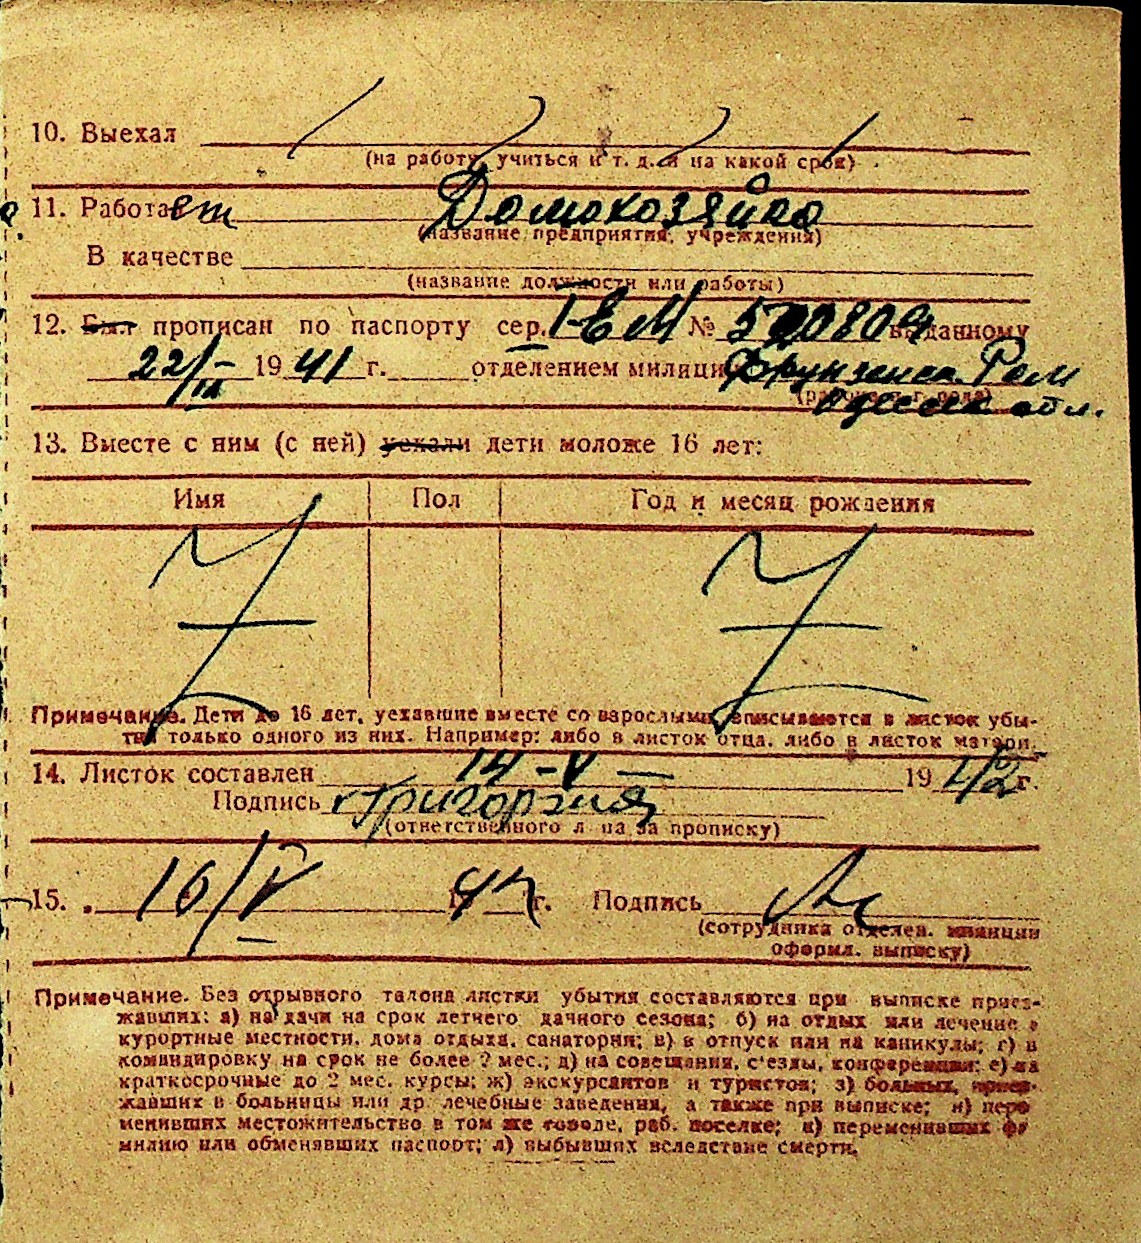 10. Выехал
(на работу, учиться и т. д. и на какой срок)
11. Работает Домохозяйка
(название предприятия, учреждения)
В качестве
(название должности или работы)
12. Был прописан по паспорту сер. № выданному
22/III 1941 г. отделением милиции Фрунзенск. Рем
Одесск обл.
13. Вместе с ним (с ней) уехали дети моложе 16 лет:
Имя Пол Год и месяц рождения
Z Z
Примечание. Дети до 16 лет, уехавшие вместе со взрослыми, вписываются в листок убы-
тия только одного из них. Например: либо в листок отца, либо в листок матери.
14. Листок составлен 14-V- 1942 г.
Подпись
(ответственного лица за прописку)
15. 16/V 42 г. Подпись
(сотрудника отделен. милиции
оформл. выписку)
Примечание. Без отрывного талона листки убытия составляются при выписке приез-
жавших: а) на дачи на срок летнего дачного сезона; б) на отдых или лечение в
курортные местности, дома отдыха, санатории; в) в отпуск или на каникулы; г) в
командировку на срок не более 2 мес.; д) на совещания, с'езды, конференции; е) на
краткосрочные до 2 мес. курсы; ж) экскурсантов и туристов; з) больных, приез-
жавших в больницы или др. лечебные заведения, а также при выписке; и) пере
менивших местожительство в том же городе, раб. поселке; к) переменивших фа
милию или обменявших паспорт; л) выбывших вследствие смерти.